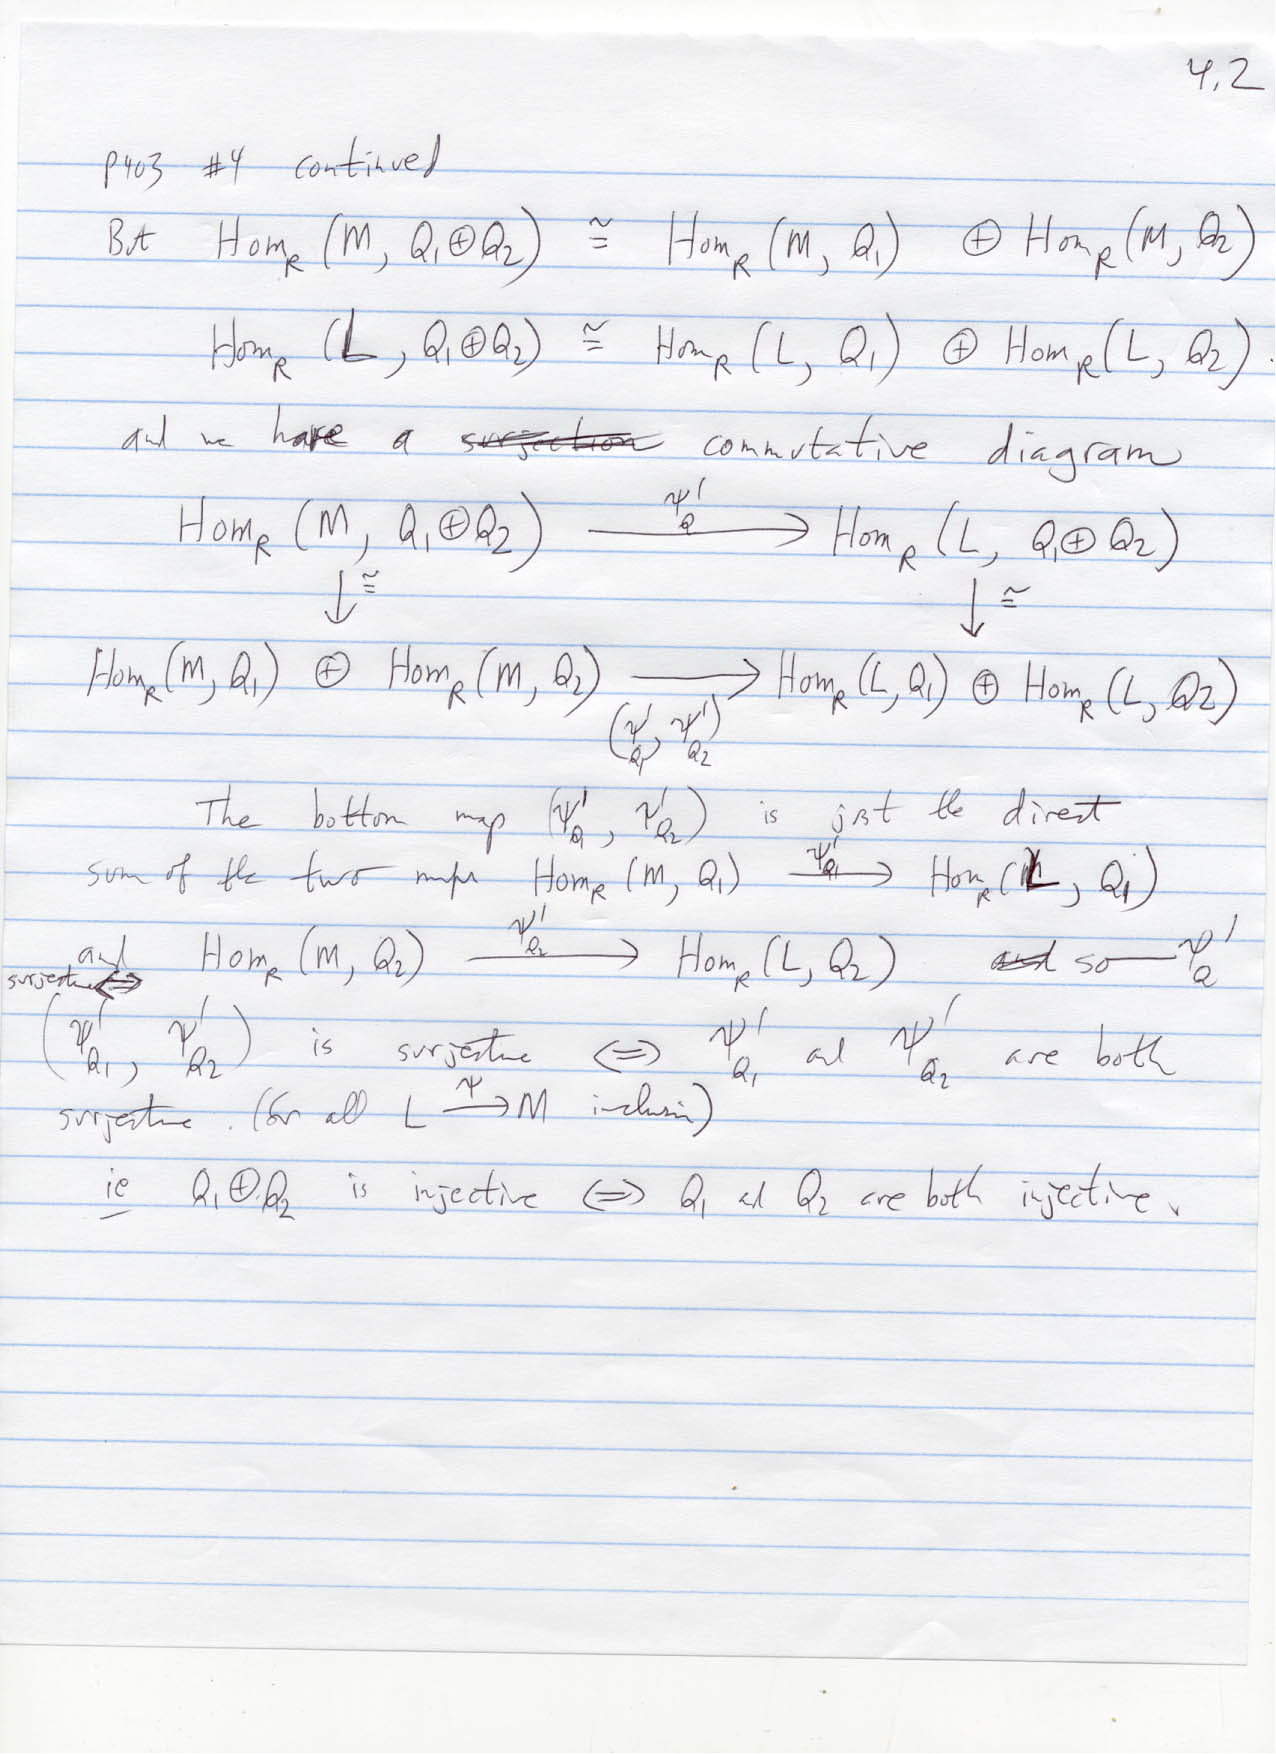 4.2
P403 #4 continued
But Hom_R (M, Q₁⊕Q₂) ≅ Hom_R (M, Q₁) ⊕ Hom_R (M, Q₂)
Hom_R (L, Q₁⊕Q₂) ≅ Hom_R (L, Q₁) ⊕ Hom_R (L, Q₂).
and we have a ~~surjection~~ commutative diagram
Hom_R (M, Q₁⊕Q₂) —ψ'_Q→ Hom_R (L, Q₁⊕Q₂)
↓≅ ↓≅
Hom_R (M, Q₁) ⊕ Hom_R (M, Q₂) ⟶ Hom_R (L, Q₁) ⊕ Hom_R (L, Q2)
(ψ'_Q₁, ψ'_Q₂)
The bottom map (ψ'_Q₁, ψ'_Q₂) is just the direct
sum of the two maps Hom_R (M, Q₁) —ψ'_Q₁→ Hom_R (L, Q₁)
and Hom_R (M, Q₂) —ψ'_Q₂→ Hom_R (L, Q₂) ~~and~~ so ψ'_Q
surjective ⇔
(ψ'_Q₁, ψ'_Q₂) is surjective ⇔ ψ'_Q₁ and ψ'_Q₂ are both
surjective. (for all L —ψ→ M inclusion)
ie Q₁⊕Q₂ is injective ⇔ Q₁ and Q₂ are both injective.